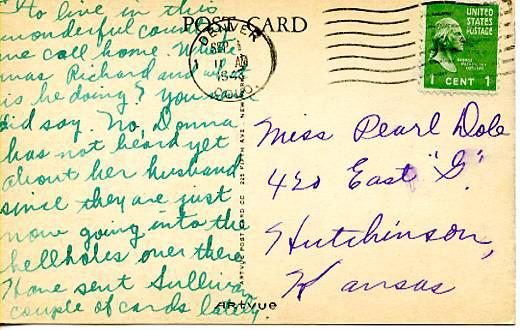 to live in this
wonderful country
we call home. What
was Richard and what
is he doing? You never
did say. No, Donna
has not heard yet
about her husband
since they are just
now going into the
hellholes over there
Have sent Sullivan
couple of cards lately.
POST CARD
DENVER
SEP
1943
COLO.
UNITED
STATES
POSTAGE
1 CENT 1
Miss Pearl Dole
420 East "G"
Hutchinson,
Kansas
ARTVUE POST CARD CO. 225 FIFTH AVE. NEW
ARTVUE